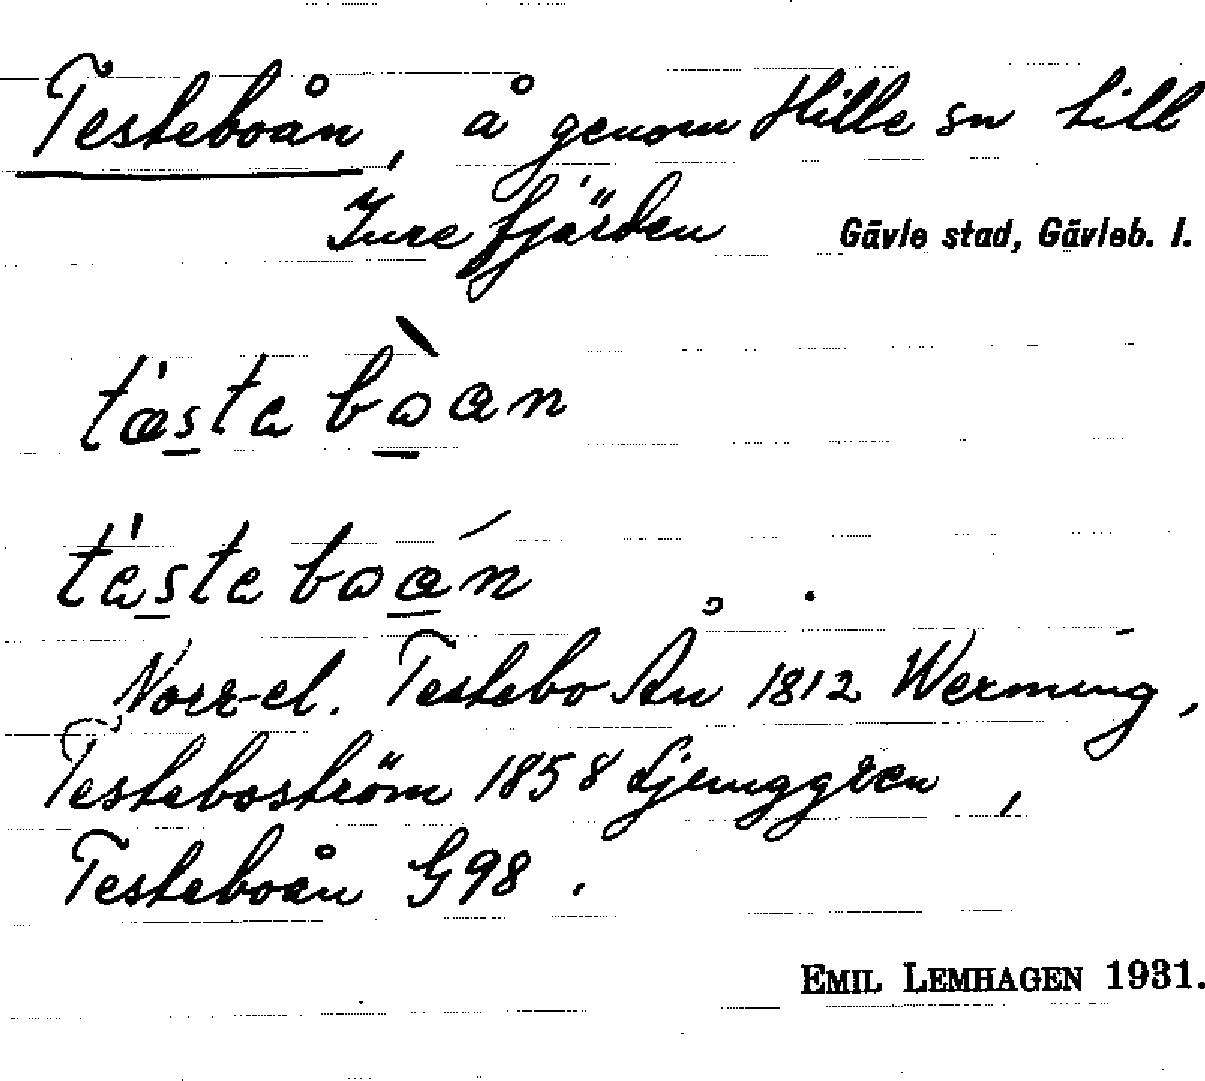 Testeboån, å genom Hille sn till
Inre fjärden Gävle stad, Gävleb. l.
Norr- el. Testebo Ån 1812 Werming,
Testeboström 1858 Ljunggren,
Testeboån G98.
EMIL LEMHAGEN 1931.